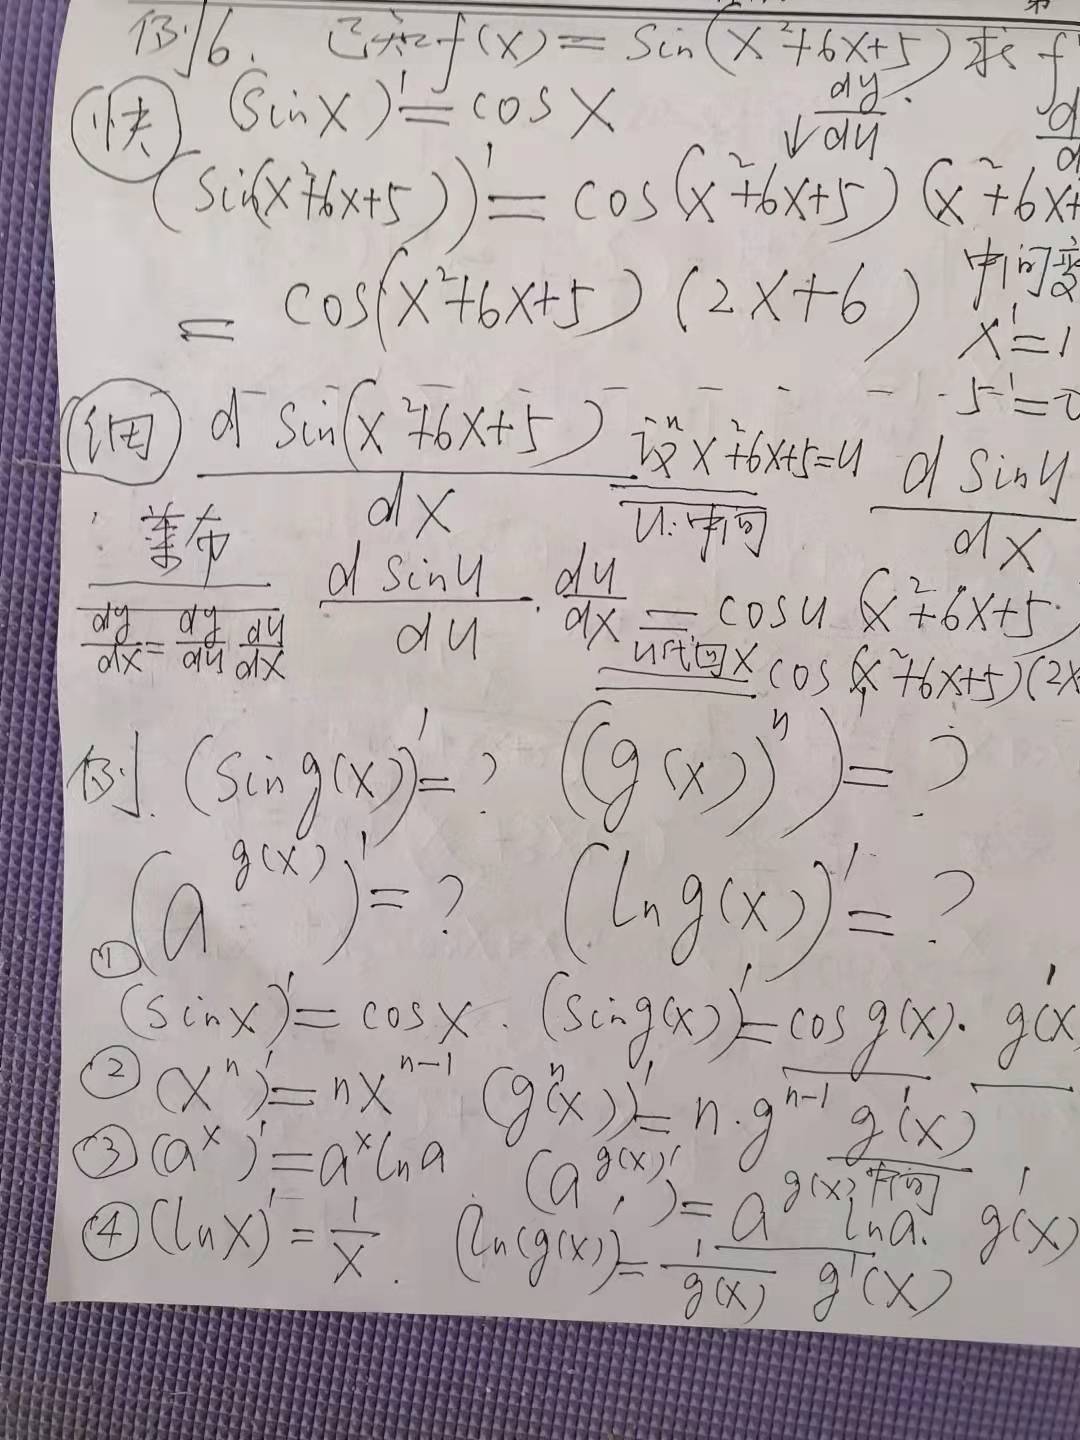 例6. 已知f(x)=sin(x²+6x+5)求f'
快 (sinx)'=cosx dy/du
(sin(x²+6x+5))'=cos(x²+6x+5)(x²+6x+
=cos(x²+6x+5)(2x+6) 中间变
x'=1
5'=0
细 d sin(x²+6x+5)/dx 设x²+6x+5=u u:中间 d sinu/dx
莱布
dy/dx=dy/du du/dx d sinu/du·du/dx=cosu(x²+6x+5)
u代回x cos(x²+6x+5)(2x
例. (sing(x))'=? ((g(x))ⁿ)'=?
(a^g(x))'=? (ln g(x))'=?
① (sinx)'=cosx. (sing(x))'=cosg(x)·g'(x)
② (xⁿ)'=nxⁿ⁻¹ (gⁿ(x))'=n·gⁿ⁻¹ g'(x)
中间
③ (aˣ)'=aˣlna (a^g(x))'=a^g(x) lna. g'(x)
④ (lnx)'=1/x. (ln(g(x))'=1/g(x) g'(x)